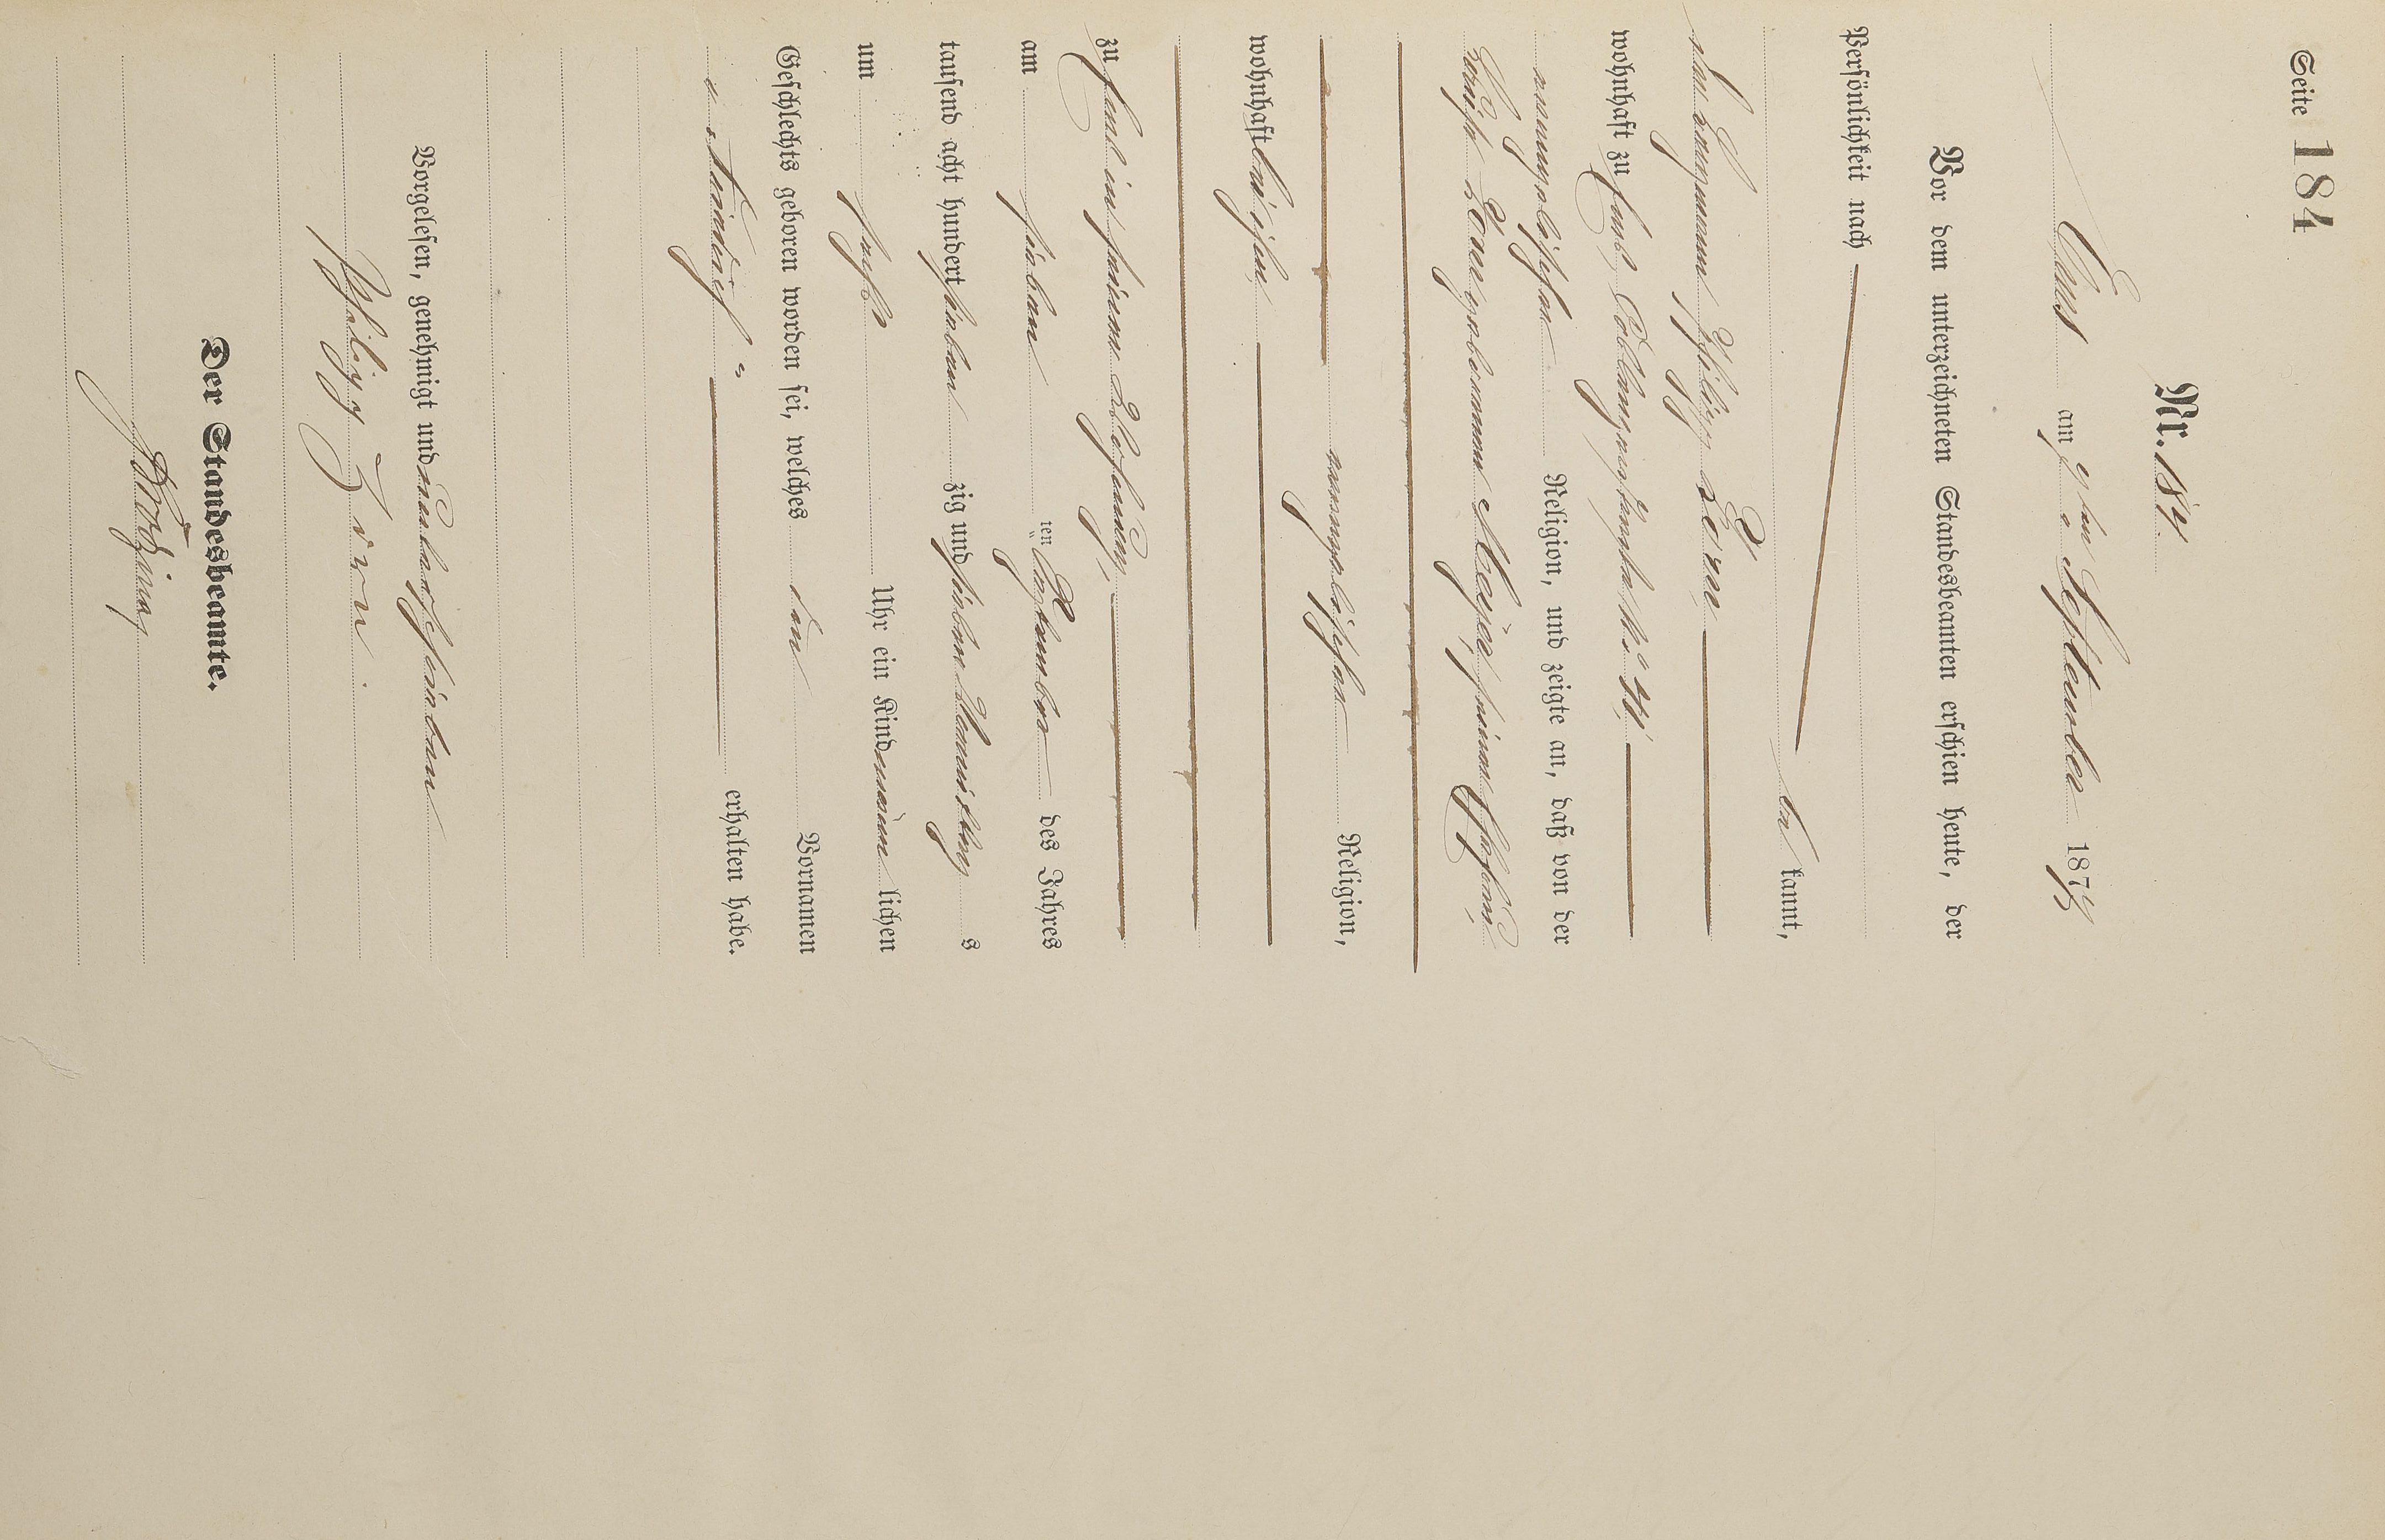 Seite 184
Nr. 184.
Ems am 9ten September 1877
Vor dem unterzeichneten Standesbeamten erschien heute, der
Persönlichkeit nach
be kannt,
der Bergmann Philipp Zorn
wohnhaft zu Ems,
evangelischer Religion, und zeigte an, daß von der
Zorn geborenen Meyer, seiner Ehefrau,
evangelischer Religion,
wohnhaft bei ihm
zu Ems in seiner Wohnung,
am sieben ten September des Jahres
tausend acht hundert sieben zig und sieben Vormittag s
um sechs Uhr ein Kind männ lichen
Geschlechts geboren worden sei, welches den Vornamen
erhalten habe.
Vorgelesen, genehmigt und unterschrieben
Philipp Zorn.
Der Standesbeamte.